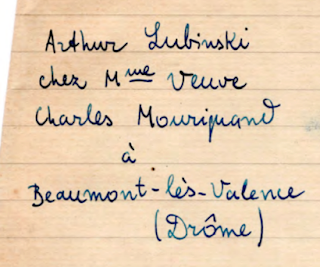 Arthur Lubinski
chez Mme Veuve
Charles Mouriquand
à
Beaumont-lès-Valence
(Drôme)